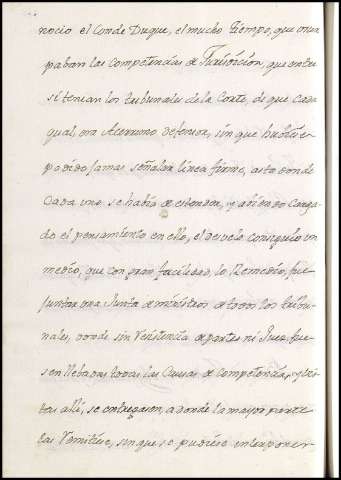 nocio el Conde Duque, el mucho tiempo, que ocu
paban las Competencias de Jurisdicion, que entre
si tenian los tribunales de la Corte, de que Cada
qual, era Acerrimo defensor, sin que hubiese
podido Jamas señalar linea firme, asta donde
Cada uno se habia de estender, y abiendo Carga
do el pensamiento en ello, el desvelo consiguio un
medio, que con gran facilidad, lo Remedio, fue
Juntar una Junta de ministros de todos los tribu
nales, donde sin Resistencia de partes ni Juez, fue
sen llebadas todas las Causas de Competencias, y
tas alli, se entregasen, a donde la mayor parte
las Remitiese, sin que se pudiese interponer